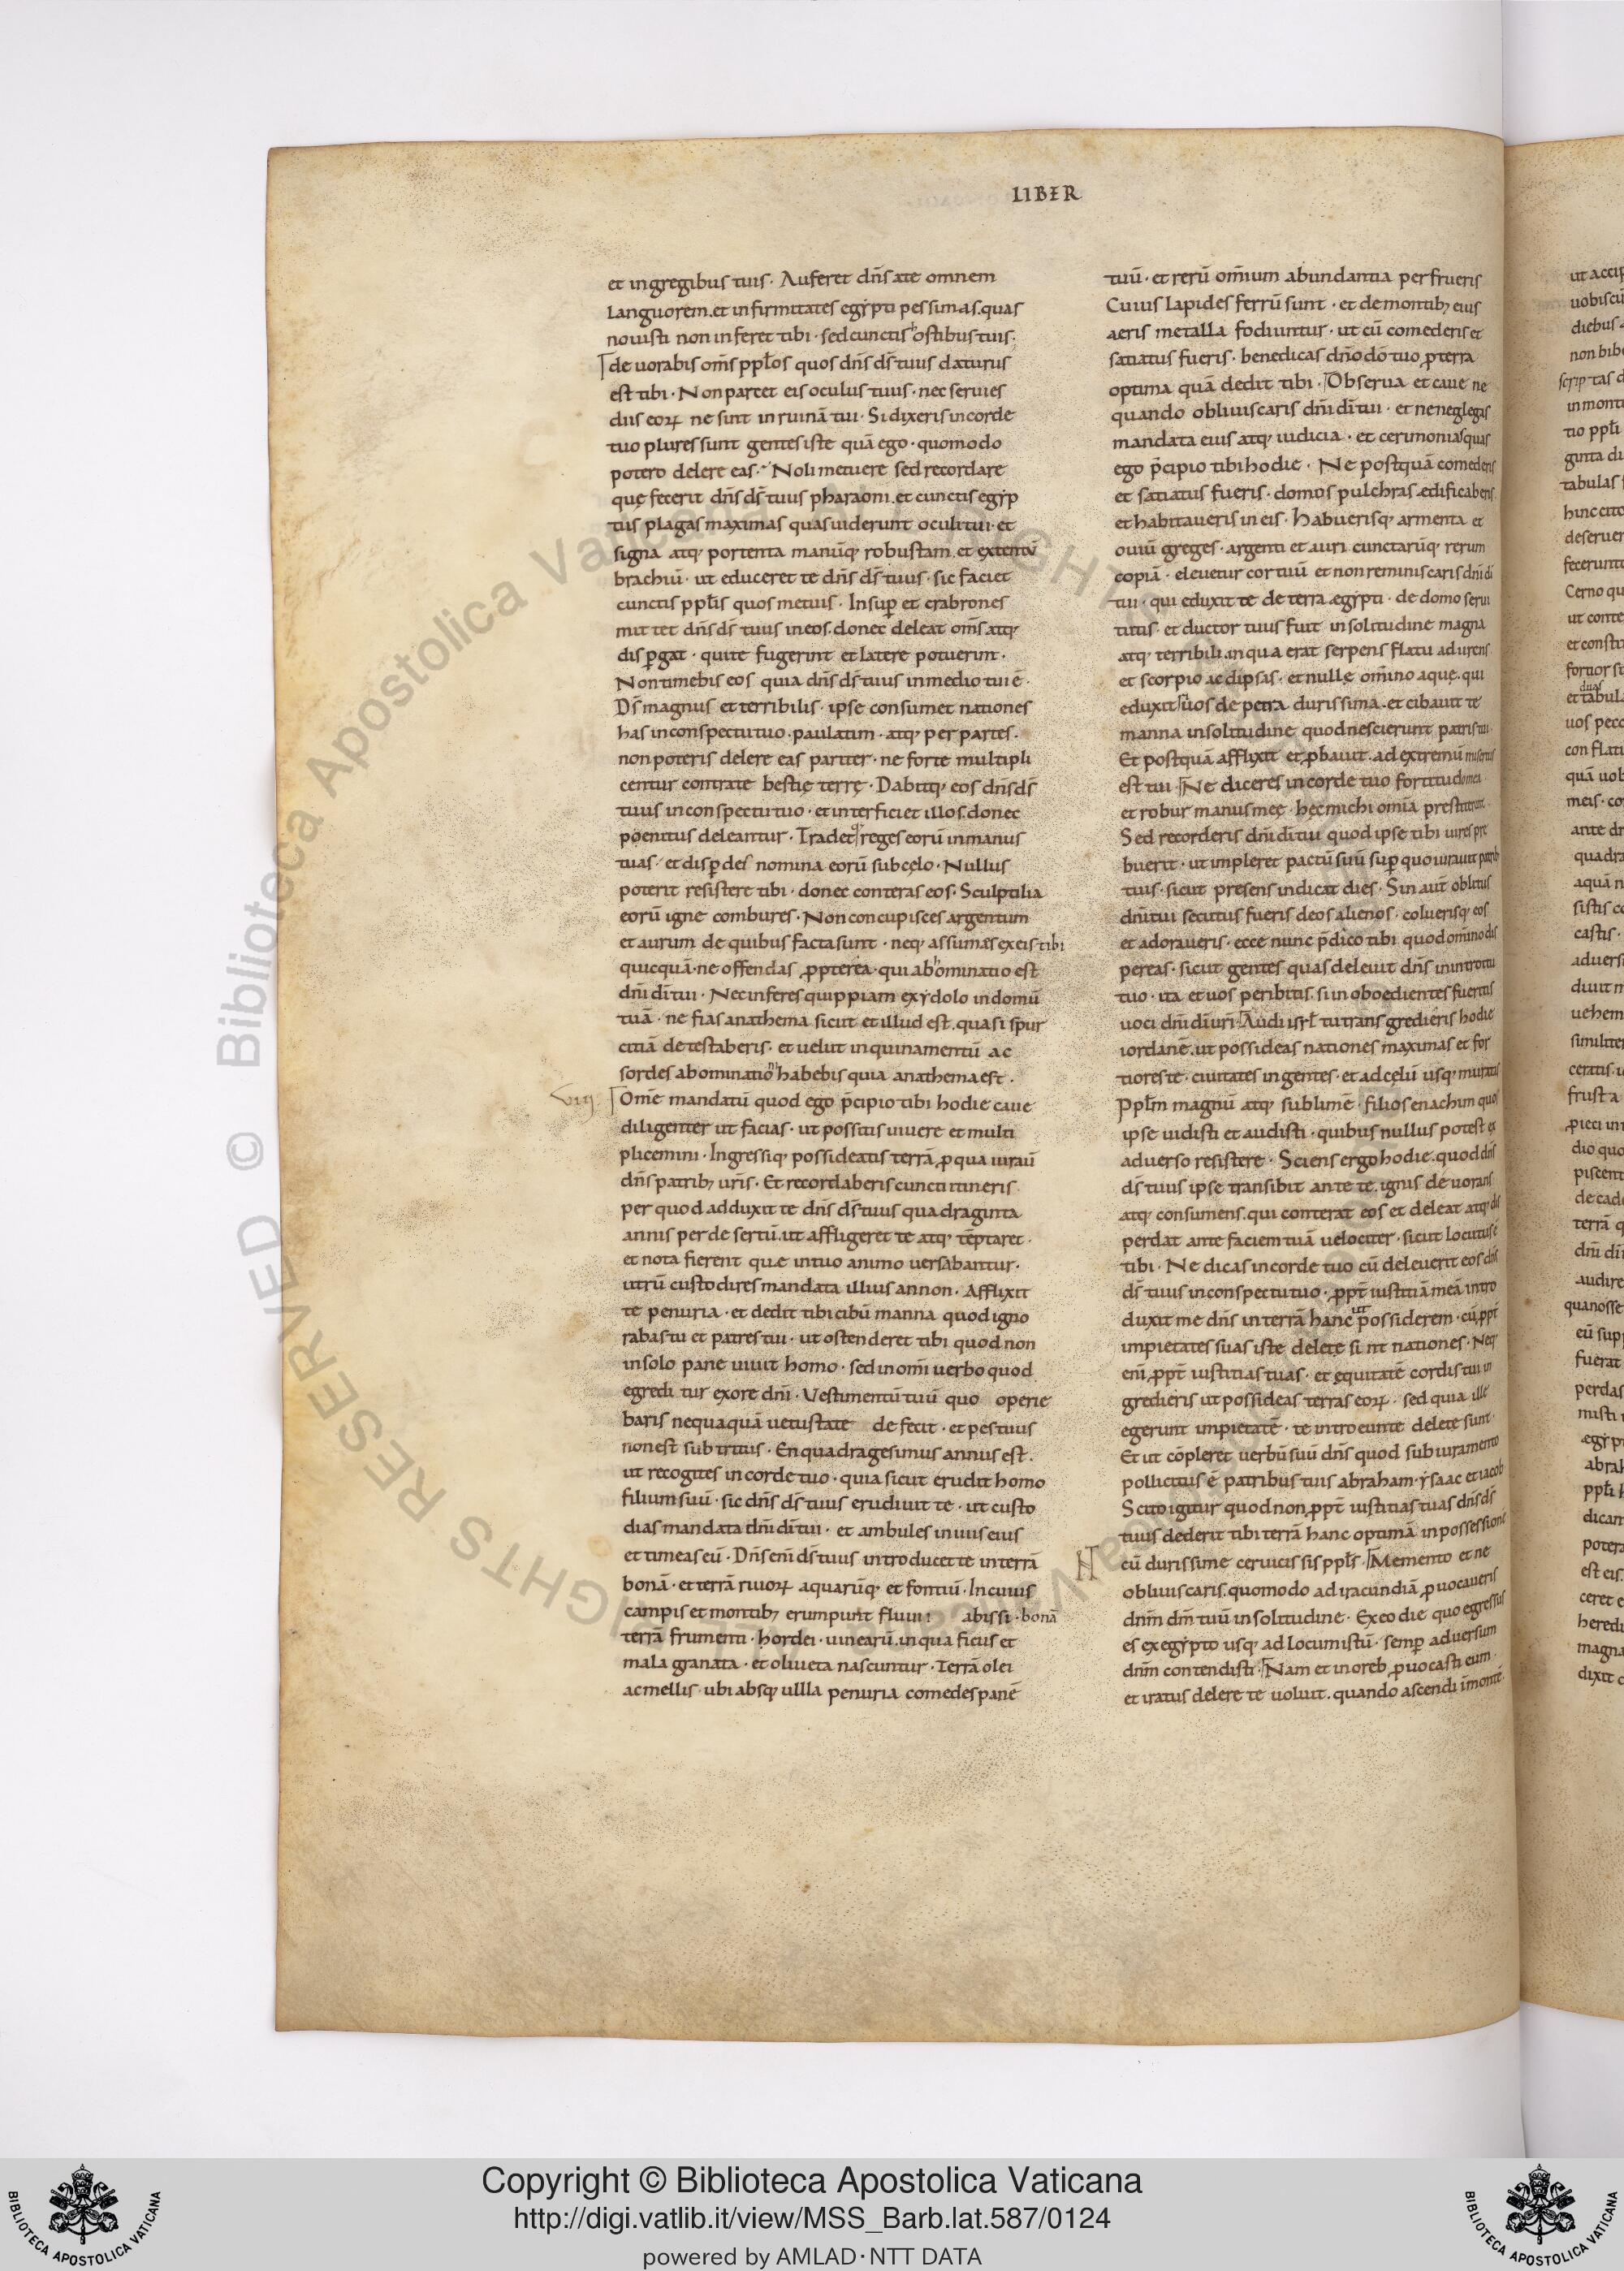 LIBER
et in gregibus tuis · Auferet dn̄s a te omnem
languorem . et infirmitates egypti pessimas . quas
nouisti non inferet tibi · sed cunctis hostibus tuis ·
deuorabis om̄s pplos quos dn̄s ds̄ tuus daturus
est tibi · Non parcet eis oculus tuus · nec seruies
diis eoꝝ ne sint in ruinā tui · Si dixeris in corde
tuo plures sunt gentes iste quā ego · quomodo
potero delere eas · Noli metuere sed recordare
quę fecerit dn̄s ds̄ tuus pharaoni . et cunctis egyp
tiis plagas maximas quas uiderunt oculi tui · et
signa atq; portenta manūq; robustam . et extentū
brachiū · ut educeret te dn̄s ds̄ tuus · sic faciet
cunctis pplis quos metuis · Insuꝑ et crabrones
mittet dn̄s ds̄ tuus in eos . donec deleat om̄s atq;
disꝑgat · qui te fugerint et latere potuerint ·
Non timebis eos quia dn̄s ds̄ tuus in medio tui ē ·
Ds̄ magnus et terribilis · ipse consumet nationes
has in conspectu tuo · paulatim · atq; per partes ·
non poteris delere eas pariter · ne forte multipli
centur contra te bestię terrę · Dabitq; eos dn̄s ds̄
tuus in conspectu tuo · et interficiet illos . donec
poenitus deleantur · Tradetq; reges eorū in manus
tuas · et disꝑdes nomina eorū sub cęlo · Nullus
poterit resistere tibi · donec conteras eos · Sculptilia
eorū igne combures · Non concupisces argentum
et aurum de quibus facta sunt · neq; assumes ex eis tibi
quicquā · ne offendas ꝓpterea · quia abhominatio est
dn̄i dī tui · Nec inferes quippiam ex ydolo in domū
tuā · ne fias anathema sicut et illud est . quasi spur
citiā detestaberis · et uelut inquinamentū ac
sordes abominationi habebis quia anathema est ·
viii Om̄e mandatū quod ego p̄cipio tibi hodie caue
diligenter ut facias · ut possitis uiuere et multi
plicemini · Ingressiq; possideatis terrā ꝓ qua iurauī
dn̄s patrib; ur̄is · Et recordaberis cuncti itineris
per quod adduxit te dn̄s ds̄ tuus quadraginta
annis per desertū . ut affligeret te atq; tēptaret ·
et nota fierent quæ in tuo animo uersabantur ·
utrū custodires mandata illius an non · Afflixit
te penuria · et dedit tibi cibū manna quod igno
rabas tu et patres tui · ut ostenderet tibi quod non
in solo pane uiuit homo · sed in om̄i uerbo quod
egreditur ex ore dn̄i · Vestimentū tuū quo operie
baris nequaquā uetustate defecit · et pes tuus
non est subtritus · En quadragesimus annus est .
ut recogites in corde tuo · quia sicut erudit homo
filium suū · sic dn̄s ds̄ tuus erudiuit te · ut custo
dias mandata dn̄i dī tui · et ambules in uiis eius
et timeas eū · Dn̄s enī ds̄ tuus introducet te in terrā
bonā · et terrā riuoꝝ aquarūq; et fontiū · In cuius
campis et montib; erumpunt fluuii abissi · bonā
terrā frumenti · hordei · uinearū . in qua ficus et
mala granata · et oliueta nascuntur · Terrā olei
ac mellis · ubi absq; ullla penuria comedes panē
tuū · et rerū om̄ium abundantia perfrueris
Cuius lapides ferrū sunt · et de montib; eius
aeris metalla fodiuntur · ut cū comederis et
satiatus fueris · benedicas dn̄o dō tuo ꝓ terra
optima quā dedit tibi · Obserua et caue ne
quando obliuiscaris dn̄i dī tui · et ne neglegas
mandata eius atq; iudicia · et cerimonias quas
ego p̄cipio tibi hodie · Ne postquā comederis
et satiatus fueris · domos pulchras ædificaberis
et habitaueris in eis · Habuerisq; armenta et
ouiū greges · argenti et auri cunctarūq; rerum
copiā · eleuetur cor tuū et non reminiscaris dn̄i dī
tui · qui eduxit te de terra ægypti · de domo serui
tutis · et ductor tuus fuit in solitudine magna
atq; terribili . in qua erat serpens flatu adurens
et scorpio ac dipsas · et nullę om̄ino aquę . qui
eduxit riuos de petra durissima . et cibauit te
manna in solitudine quod nescierunt patris tui ·
Et postquā afflixit et ꝓbauit . ad extremū misertus
est tui · Ne diceres in corde tuo fortitudo mea
et robur manus meę · hęc michi om̄ia prestiterunt ·
Sed recorderis dn̄i dī tui quod ipse tibi uires pre
buerit · ut impleret pactū suū suꝑ quo iurauit patrib;
tuis · sicut presens indicat dies · Sin aut̄ oblitus
dn̄i tui secutus fueris deos alienos · coluerisq; eos
et adoraueris · ecce nunc p̄dico tibi quod om̄ino dis
pereas · sicut gentes quas deleuit dn̄s in introitu
tuo · ita et uos peribitis . si inoboedientes fueritis
uoci dn̄i dī ur̄i · Audi isrl̄ tu transgredieris hodie
iordanē . ut possideas nationes maximas et for
tiores te · ciuitates ingentes · et ad cęlū usq; muratas
Pplm̄ magnū atq; sublimē · filios enachim quos
ipse uidisti et audisti · quibus nullus potest ex
aduerso resistere · Sciens ergo hodie . quod dn̄s
ds̄ tuus ipse transibit ante te . ignis deuorans
atq; consumens . qui conterat eos et deleat atq; dis
perdat ante faciem tuā uelociter · sicut locutus ē
tibi · Ne dicas in corde tuo cū deleuerit eos dn̄s
ds̄ tuus in conspectu tuo · ꝓpt̄ iustitiā meā intro
duxit me dn̄s in terrā hanc ut possiderem · cū ꝓpt̄
impietates suas iste deletę sint nationes · Neq;
enī ꝓpt̄ iustitias tuas · et equitatē cordis tui in
gredieris ut possideas terras eoꝝ · sed quia ille
egerunt impietatē · te introeunte deletę sunt ·
Et ut cōpleret uerbū suū dn̄s quod sub iuramento
pollicitus ē patribus tuis abraham · ysaac et iacob
Scito igitur quod non ꝓpt̄ iustitias tuas dn̄s ds̄
tuus dederit tibi terrā hanc optimā in possessionē
cū durissime ceruicis sis ppls · Memento et ne
obliuiscaris . quomodo ad iracundiā ꝓuocaueris
dn̄m dm̄ tuū in solitudine · Ex eo die quo egressus
es ex egypto usq; ad locum istū · semꝑ aduersum
dn̄m contendisti · Nam et in oreb ꝓuocasti eum ·
et iratus delere te uoluit . quando ascendi ī montē ·
Copyright © Biblioteca Apostolica Vaticana
http://digi.vatlib.it/view/MSS_Barb.lat.587/0124
powered by AMLAD·NTT DATA